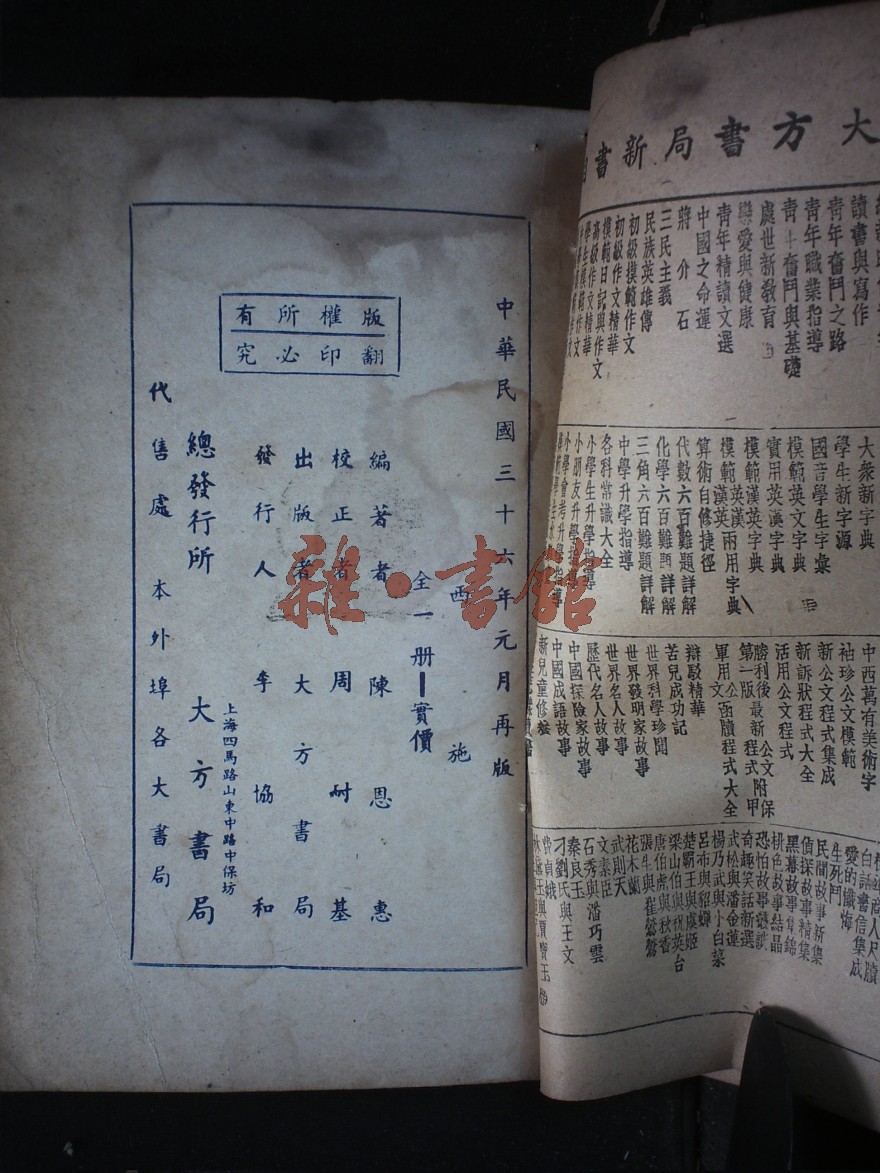 大方書局新書
讀書與寫作
青年奮鬥之路
青年職業指導
青年奮鬥與基礎
處世新教育
戀愛與健康
青年精讀文選
中國之命運
蔣介石
三民主義
民族英雄傳
初級模範作文
初級作文精華
模範日記與作文
高級作文精華
大衆新字典
學生新字源
國音學生字彙
模範英文字典
實用英漢字典
模範漢英字典
模範英漢漢英兩用字典
算術自修捷徑
代數六百難題詳解
化學六百難題詳解
三角六百難題詳解
中學升學指導
各科常識大全
小學生升學指導
小朋友升學指導
中西萬有美術字
袖珍公文模範
新公文程式集成
新訴狀程式大全
活用公文程式
勝利後最新公文附保甲
第一版公函牘程式大全
軍用文
辯駁精華
苦兒成功記
世界科學珍聞
世界發明家故事
世界名人故事
歷代名人故事
中國探險家故事
中國成語故事
新兒童修養
白話書信集成
愛的懺悔
生死鬥
民間故事新集
偵探故事精集
黑幕故事集錦
桃色故事結晶
恐怕故事叢談
奇趣笑話新選
武松與潘金蓮
楊乃武與小白菜
呂布與貂蟬
楚霸王與虞姬
梁山伯與祝英台
唐伯虎與秋香
張生與崔鶯鶯
花木蘭
武則天
文素臣
石秀與潘巧雲
秦良玉
刁劉氏與王文
費貞娥
中華民國三十六年元月再版
西施
全一册 實價
編著者 陳恩惠
校正者 周耐基
出版者 大方書局
發行人 李協和
版權所有
翻印必究
總發行所 大方書局
上海四馬路山東中路中保坊
代售處 本外埠各大書局
雜·書館